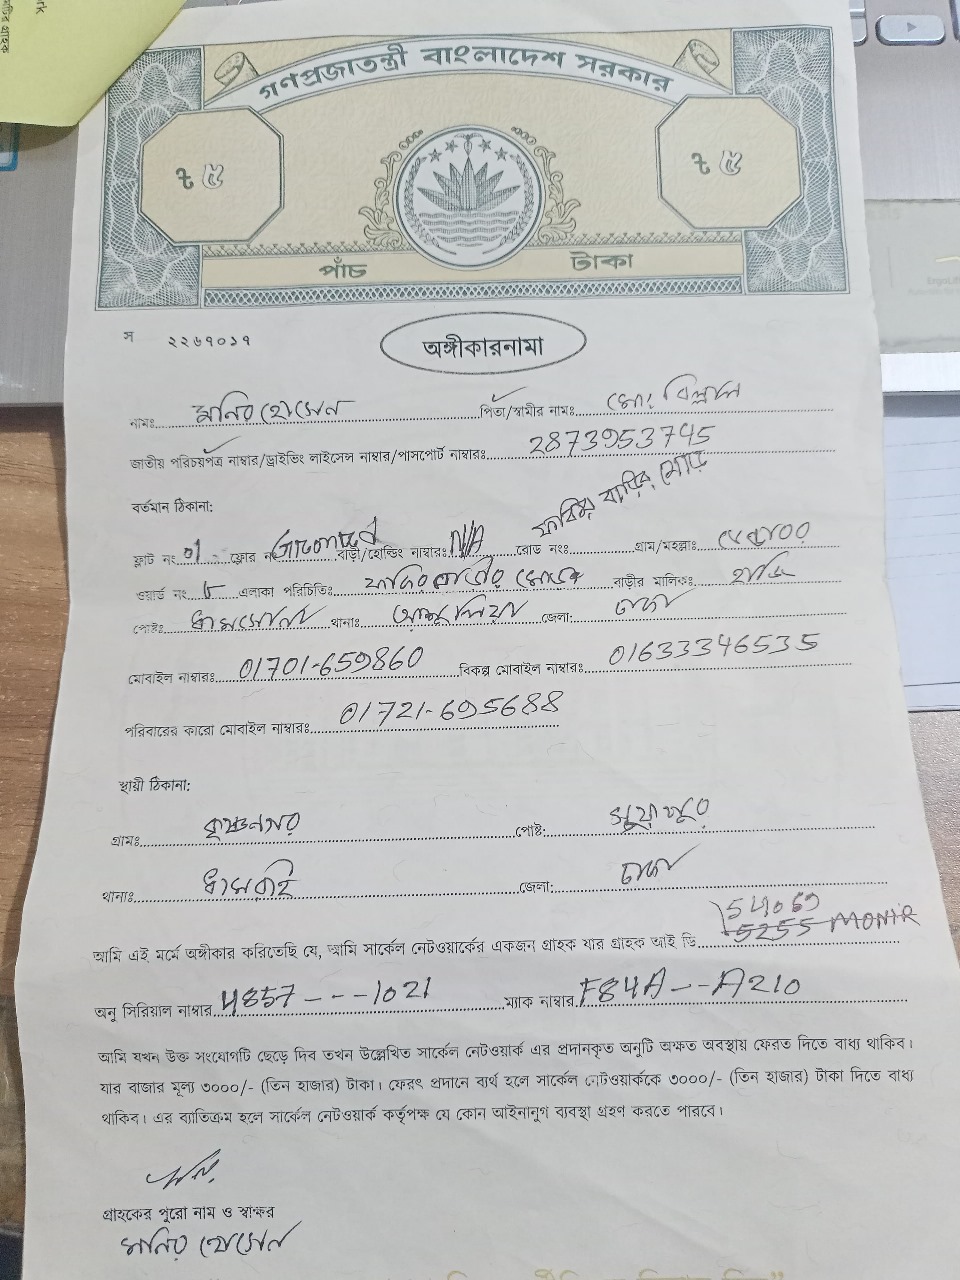 গণপ্রজাতন্ত্রী বাংলাদেশ সরকার
৳ ৫ ৳ ৫
পাঁচ টাকা
স ২২৬৭০১৭
অঙ্গীকারনামা
নামঃ মনির হোসেন পিতা/স্বামীর নামঃ মোঃ বিল্লাল
জাতীয় পরিচয়পত্র নাম্বার/ড্রাইভিং লাইসেন্স নাম্বার/পাসপোর্ট নাম্বারঃ 2873953745
বর্তমান ঠিকানা:
ফ্লাট নং 01 ফ্লোর নং Ground বাড়ী/হোল্ডিং নাম্বারঃ N/A রোড নংঃ গ্রাম/মহল্লাঃ
ওয়ার্ড নং ৮ এলাকা পরিচিতিঃ বাড়ীর মালিকঃ হাজি
পোষ্টঃ ধামসোনা থানাঃ আশুলিয়া জেলা: ঢাকা
মোবাইল নাম্বারঃ 01701-659860 বিকল্প মোবাইল নাম্বারঃ 01633346535
পরিবারের কারো মোবাইল নাম্বারঃ 01721-695688
স্থায়ী ঠিকানা:
গ্রামঃ কৃষ্ণনগর পোষ্ট: সুয়াপুর
থানাঃ ধামরাই জেলা: ঢাকা
আমি এই মর্মে অঙ্গীকার করিতেছি যে, আমি সার্কেল নেটওয়ার্কের একজন গ্রাহক যার গ্রাহক আই ডি 5255 MONIR
অনু সিরিয়াল নাম্বার 4857---1021 ম্যাক নাম্বার F84A--A210
আমি যখন উক্ত সংযোগটি ছেড়ে দিব তখন উল্লেখিত সার্কেল নেটওয়ার্ক এর প্রদানকৃত অনুটি অক্ষত অবস্থায় ফেরত দিতে বাধ্য থাকিব।
যার বাজার মূল্য ৩০০০/- (তিন হাজার) টাকা। ফেরৎ প্রদানে ব্যর্থ হলে সার্কেল নেটওয়ার্ককে ৩০০০/- (তিন হাজার) টাকা দিতে বাধ্য
থাকিব। এর ব্যাতিক্রম হলে সার্কেল নেটওয়ার্ক কর্তৃপক্ষ যে কোন আইনানুগ ব্যবস্থা গ্রহণ করতে পারবে।
গ্রাহকের পুরো নাম ও স্বাক্ষর
মনির হোসেন